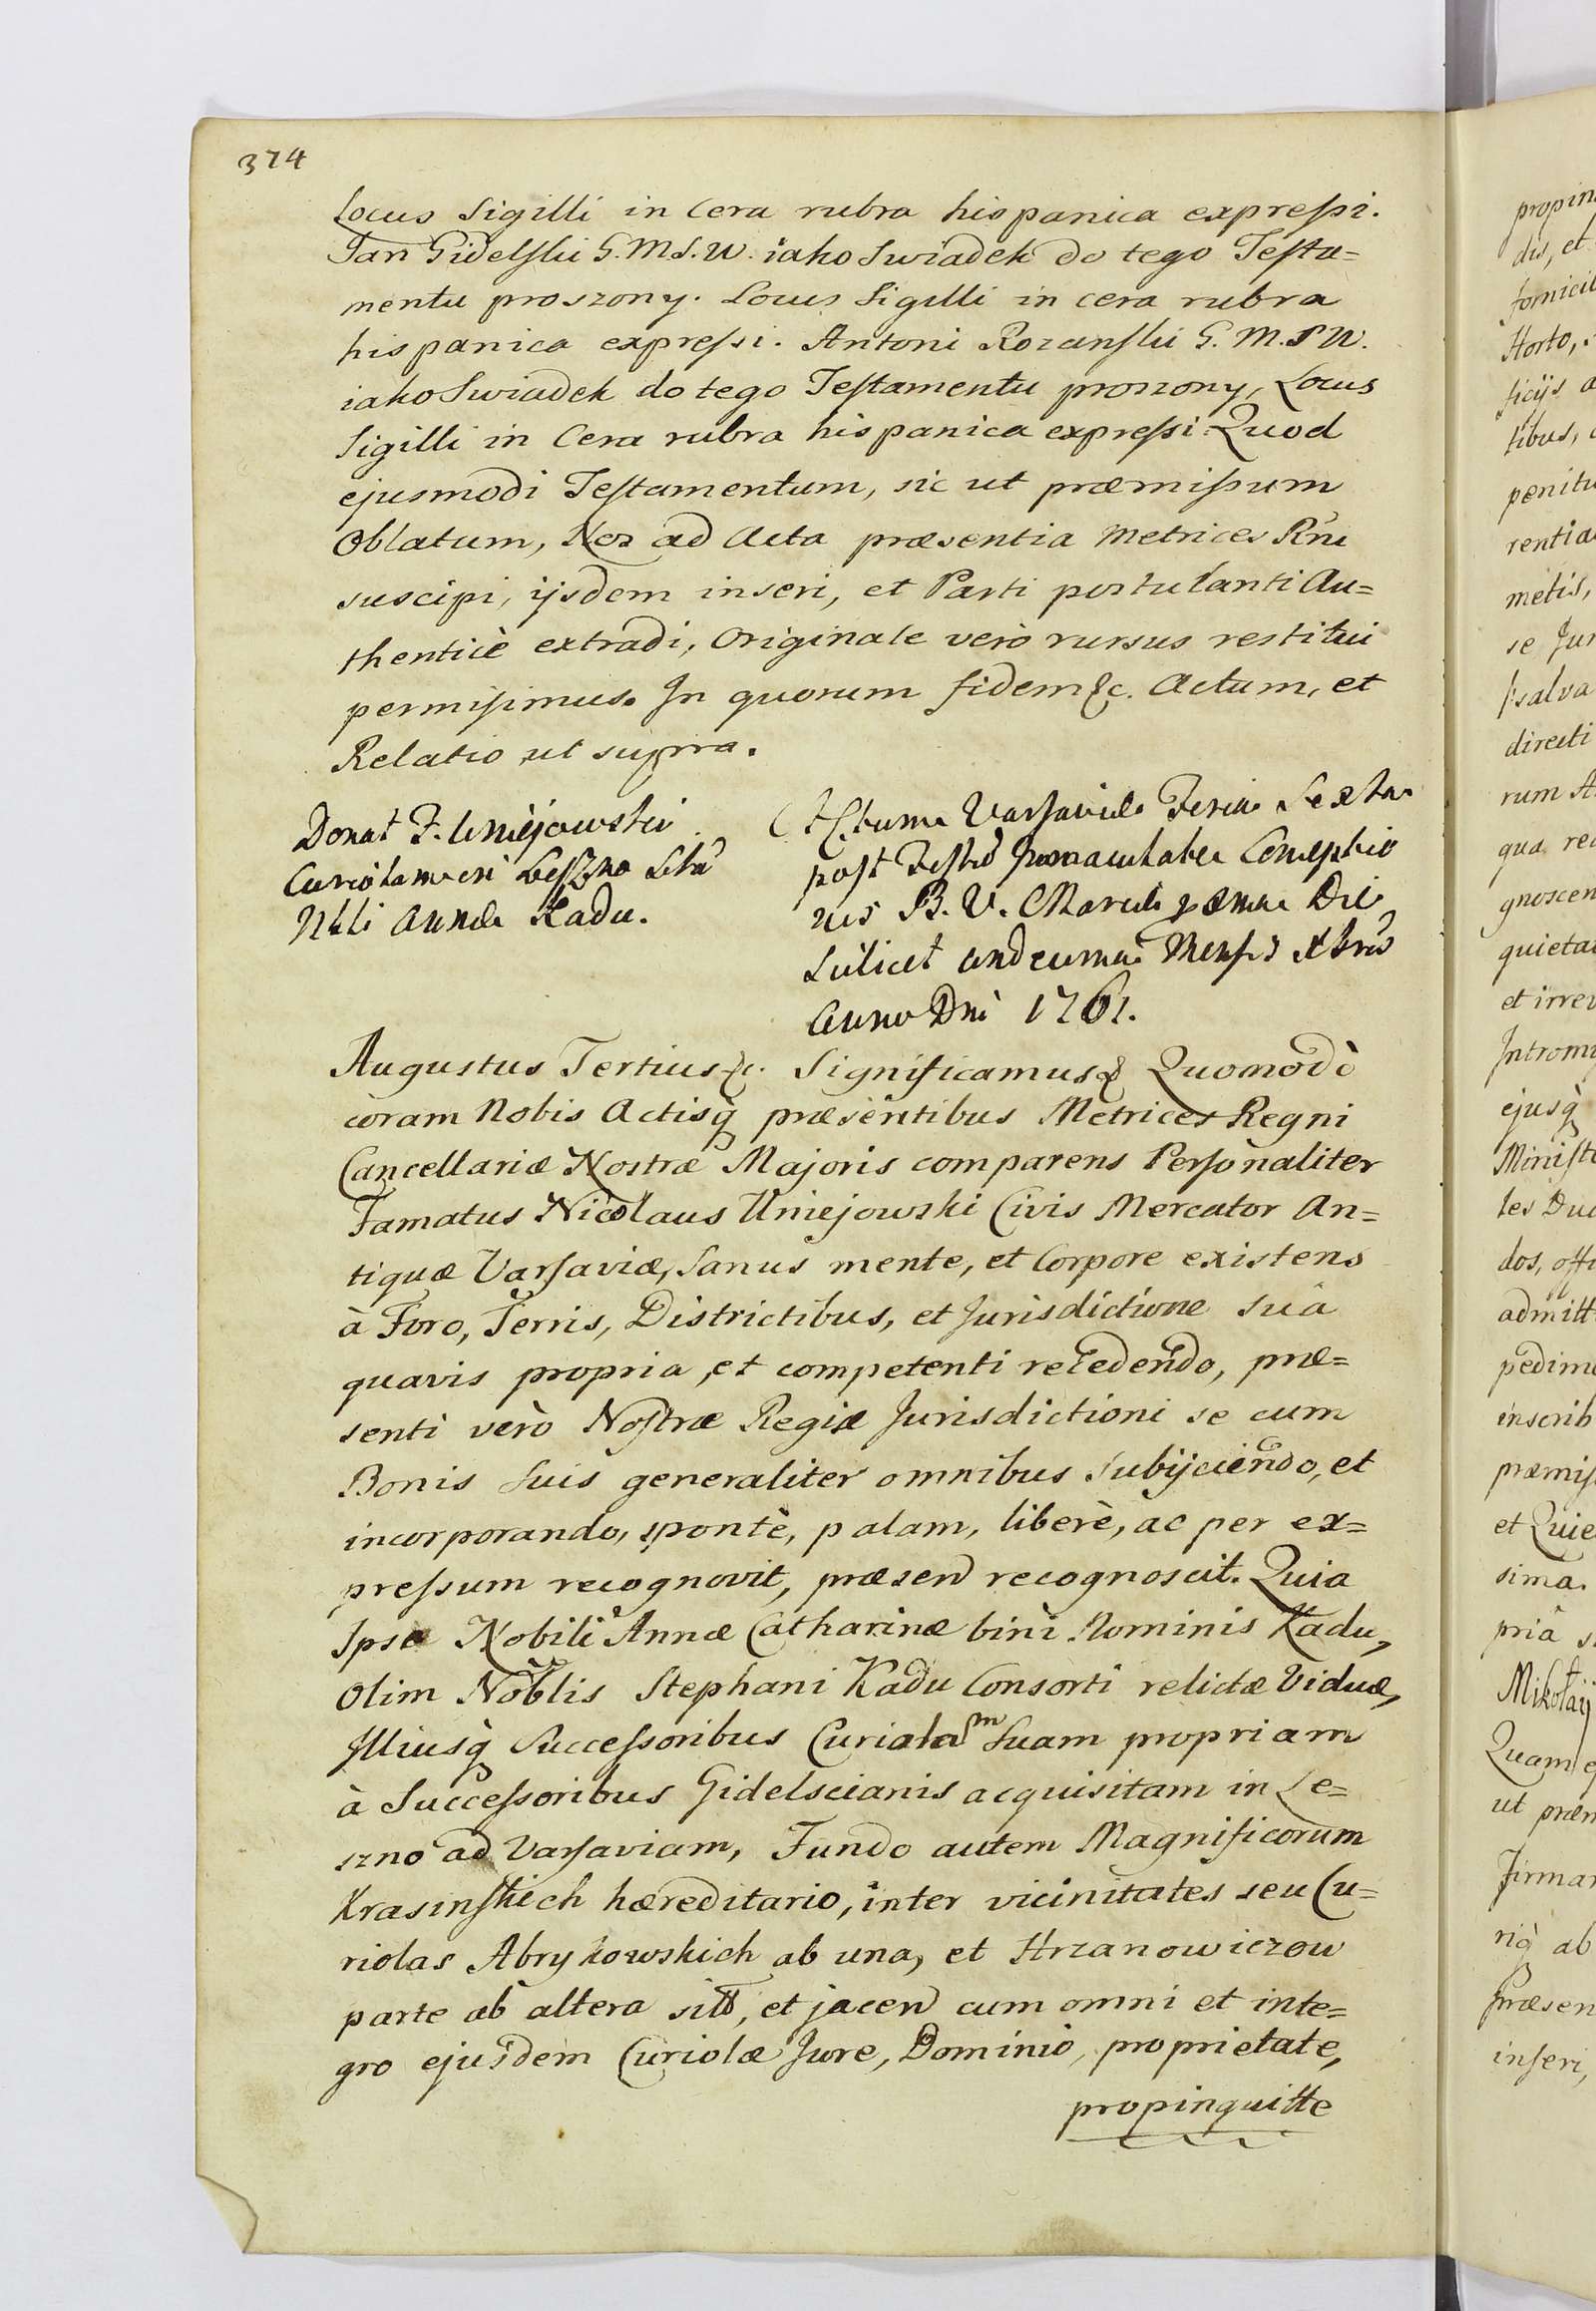 374
Locus Sigilli in Cera rubra hispanica expreſsi.
Jan Gidelſki G.M.S.W. iako Swiadek do tego Teſta=
mentu proszony. Locus Sigilli in cera rubra
hispanica expreſsi. Antoni Rozanſki G. M. S W.
iako Swiadek do tego Teſtamentu proszony, Locus
Sigilli in Cera rubra hispanica expreſsi. Quod
ejusmodi Teſtamentum, sic ut præmiſsum
Oblatum, Nos ad Acta præsentia Metrices Rñi
suscipi, ijsdem inseri, et Parti postulanti Au=
thenticè extradi, Originale verò rursus restitui
permiſimus. In quorum fidem &c. Actum, et
Relatio ut supra.
Donat F. Uniejowski
Curiolam in Leſzno Sitã
Nbli Annæ Kadu.
Actum Varſaviæ Feria Sexta
poſt Feſtũ Immaculatæ Conceptio
nis B. V. Mariæ Die
Scilicet undecima Menſis Xbris
Anno Dñi 1761.
Augustus Tertius &c. Significamus & Quomodò
coram Nobis Actisq̃ præsentibus Metrices Regni
Cancellariæ Nostræ Majoris comparens Perſonaliter
Famatus Nicolaus Uniejowski Civis Mercator An=
tiquæ Varſaviæ, Sanus mente, et Corpore existens
à Foro, Terris, Districtibus, et Jurisdictione suâ
quavis propria, et competenti recedendo, præ=
senti verò Noſtræ Regiæ Jurisdictioni se cum
Bonis Suis generaliter omnibus Subijciendo, et
incorporando, spontè, palam, liberè, ac per ex=
preſsum recognovit, præsen͠ recognoscit. Quia
Ipse Nobili Annæ Catharinæ bini Nominis Kadu,
Olim Nob̃lis Stephani Kadu Consorti relictæ Viduæ,
Illiusq̃ Succeſsoribus Curiolam Suam propriam
à Succeſsoribus Gidelscianis acquisitam in Le=
szno ad Varſaviam, Fundo autem Magnificorum
Krasinſkich hæreditario, inter vicinitates seu Cu=
riolas Abrykowskich ab una, et Hrzanowiczow
parte ab altera sitt̃, et jacen͠ cum omni et inte=
gro ejusdem Curiolæ Jure, Dominio, proprietate,
propinquitte
propin
dis, et
fornicib
Horto,
ficijs a
tibus,
penitu
rentia
metis,
se Jur
salva
directi
rum A
qua rec
gnoscen
quietan
et irrev
Intromi
ejusq̃
Miniſte
les Duc
dos, offi
admitt
pedime
inscrib
præmiſ
et Quie
sima.
priâ s
Mikołaij
Quam e
ut præm
Firmar
riq̃ ab
Præsen
inſeri,